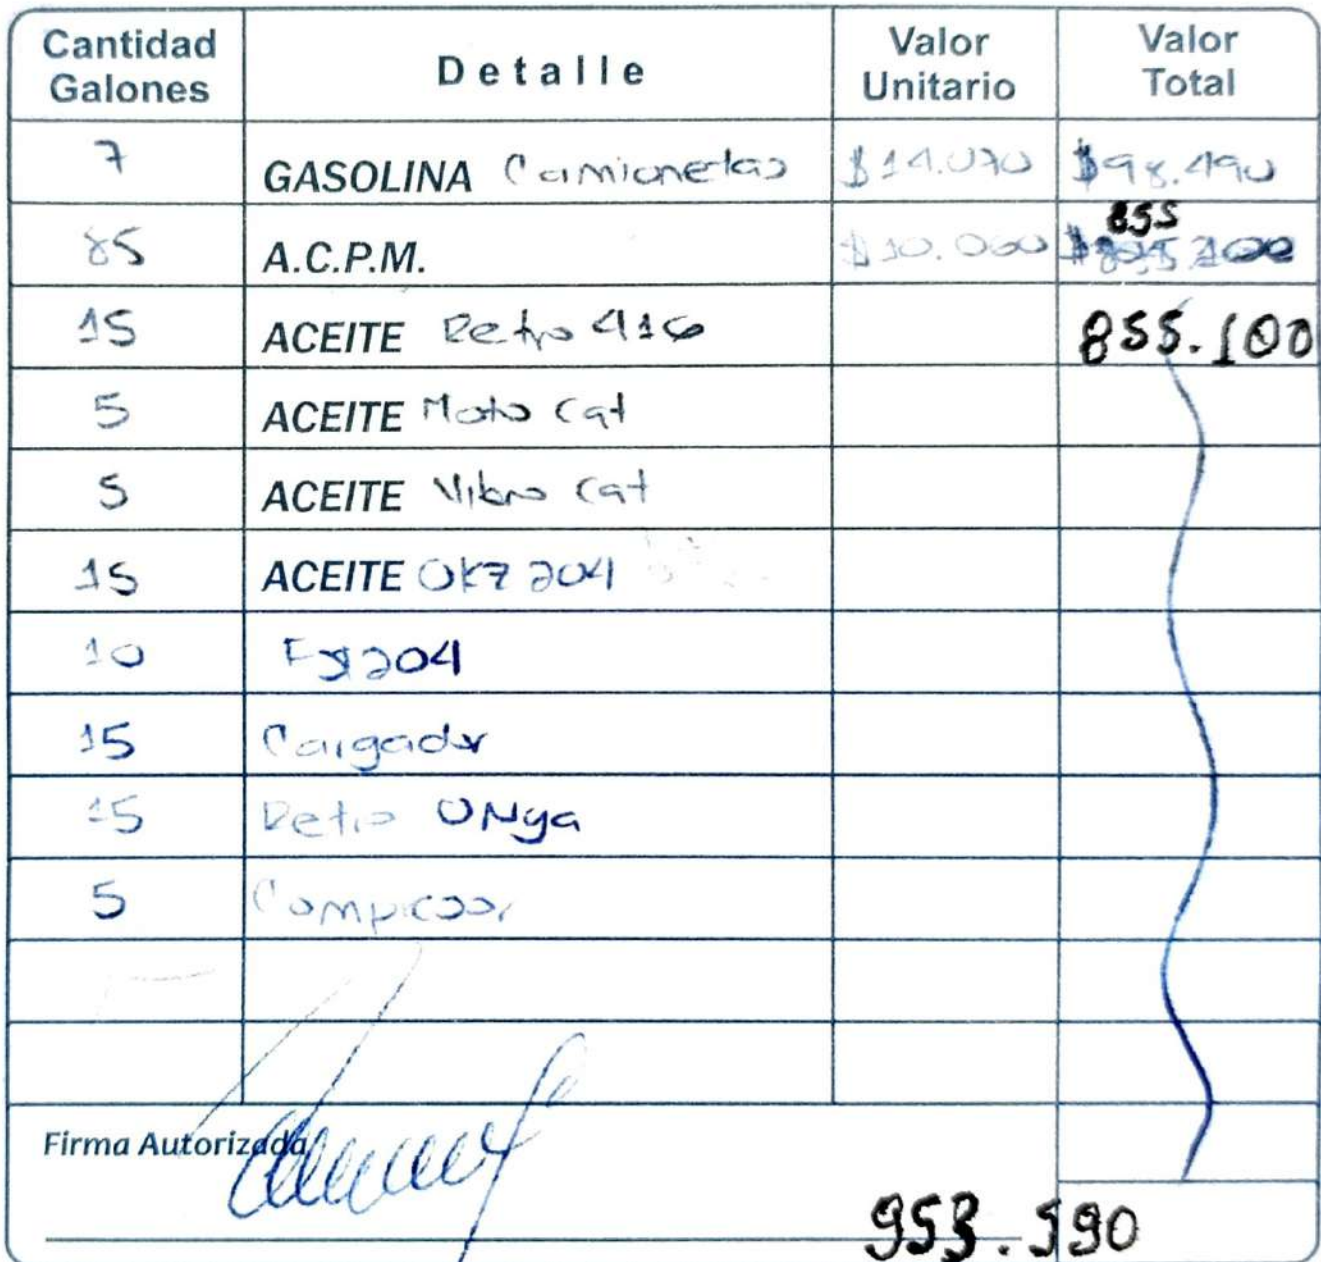 Cantidad Galones Detalle Valor Unitario Valor Total
7 GASOLINA Camionetas $14.070 $98.490
855
85 A.C.P.M. $10.060
15 ACEITE Retro 416 855.100
5 ACEITE Moto Cat
5 ACEITE Vibro Cat
15 ACEITE OK7 204
10 204
15 Cargador
15 Retro UNya
5 Compresor
Firma Autorizada
953.590